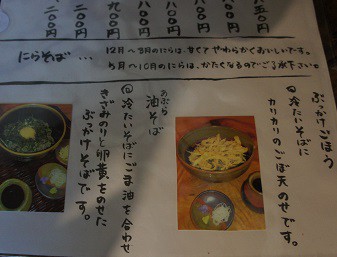 八〇〇円
八〇〇円
八〇〇円
にらそば … 12月〜3月のにらは、甘くてやわらかくおいしいです。
5月〜10月のにらは、かたくなるのでご了承下さい。
ぶっかけごぼう
冷たいそばに
カリカリのごぼ天のせです。
あぶら
油そば
冷たいそばにごま油を合わせ
きざみのりと卵黄をのせた
ぶっかけそばです。